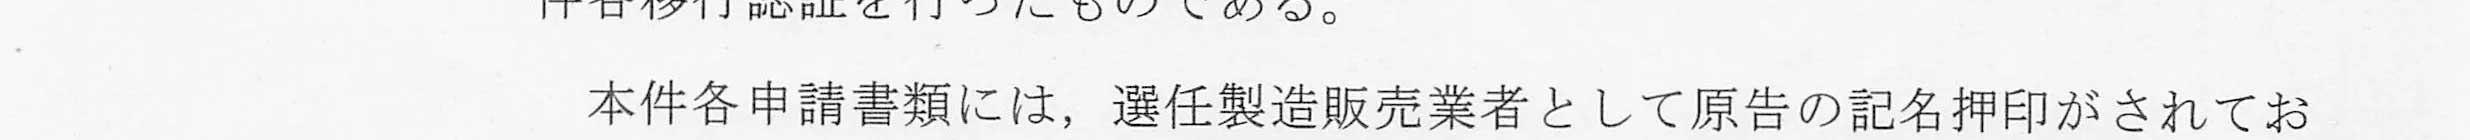 件各移行認証を行ったものである。
本件各申請書類には，選任製造販売業者として原告の記名押印がされてお